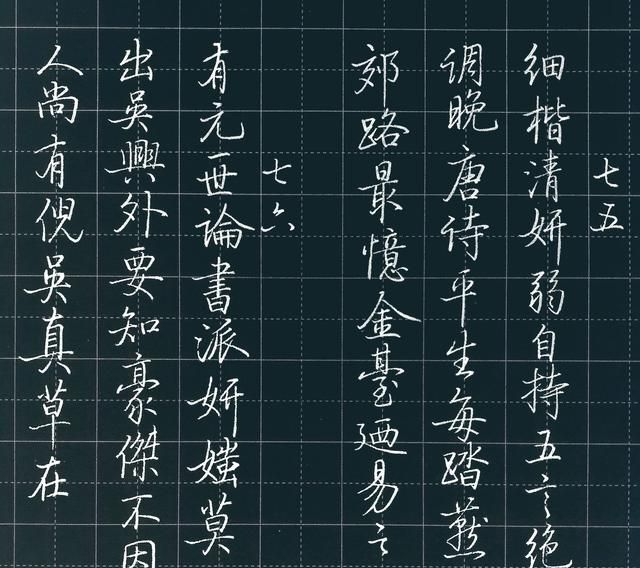 七五
细楷清妍弱自持五言绝
调晚唐诗平生每踏燕
郊路最憶金臺廼易之
七六
有元一世論書派妍媸莫
出吳興外要知豪傑不因
人尚有倪吳真草在